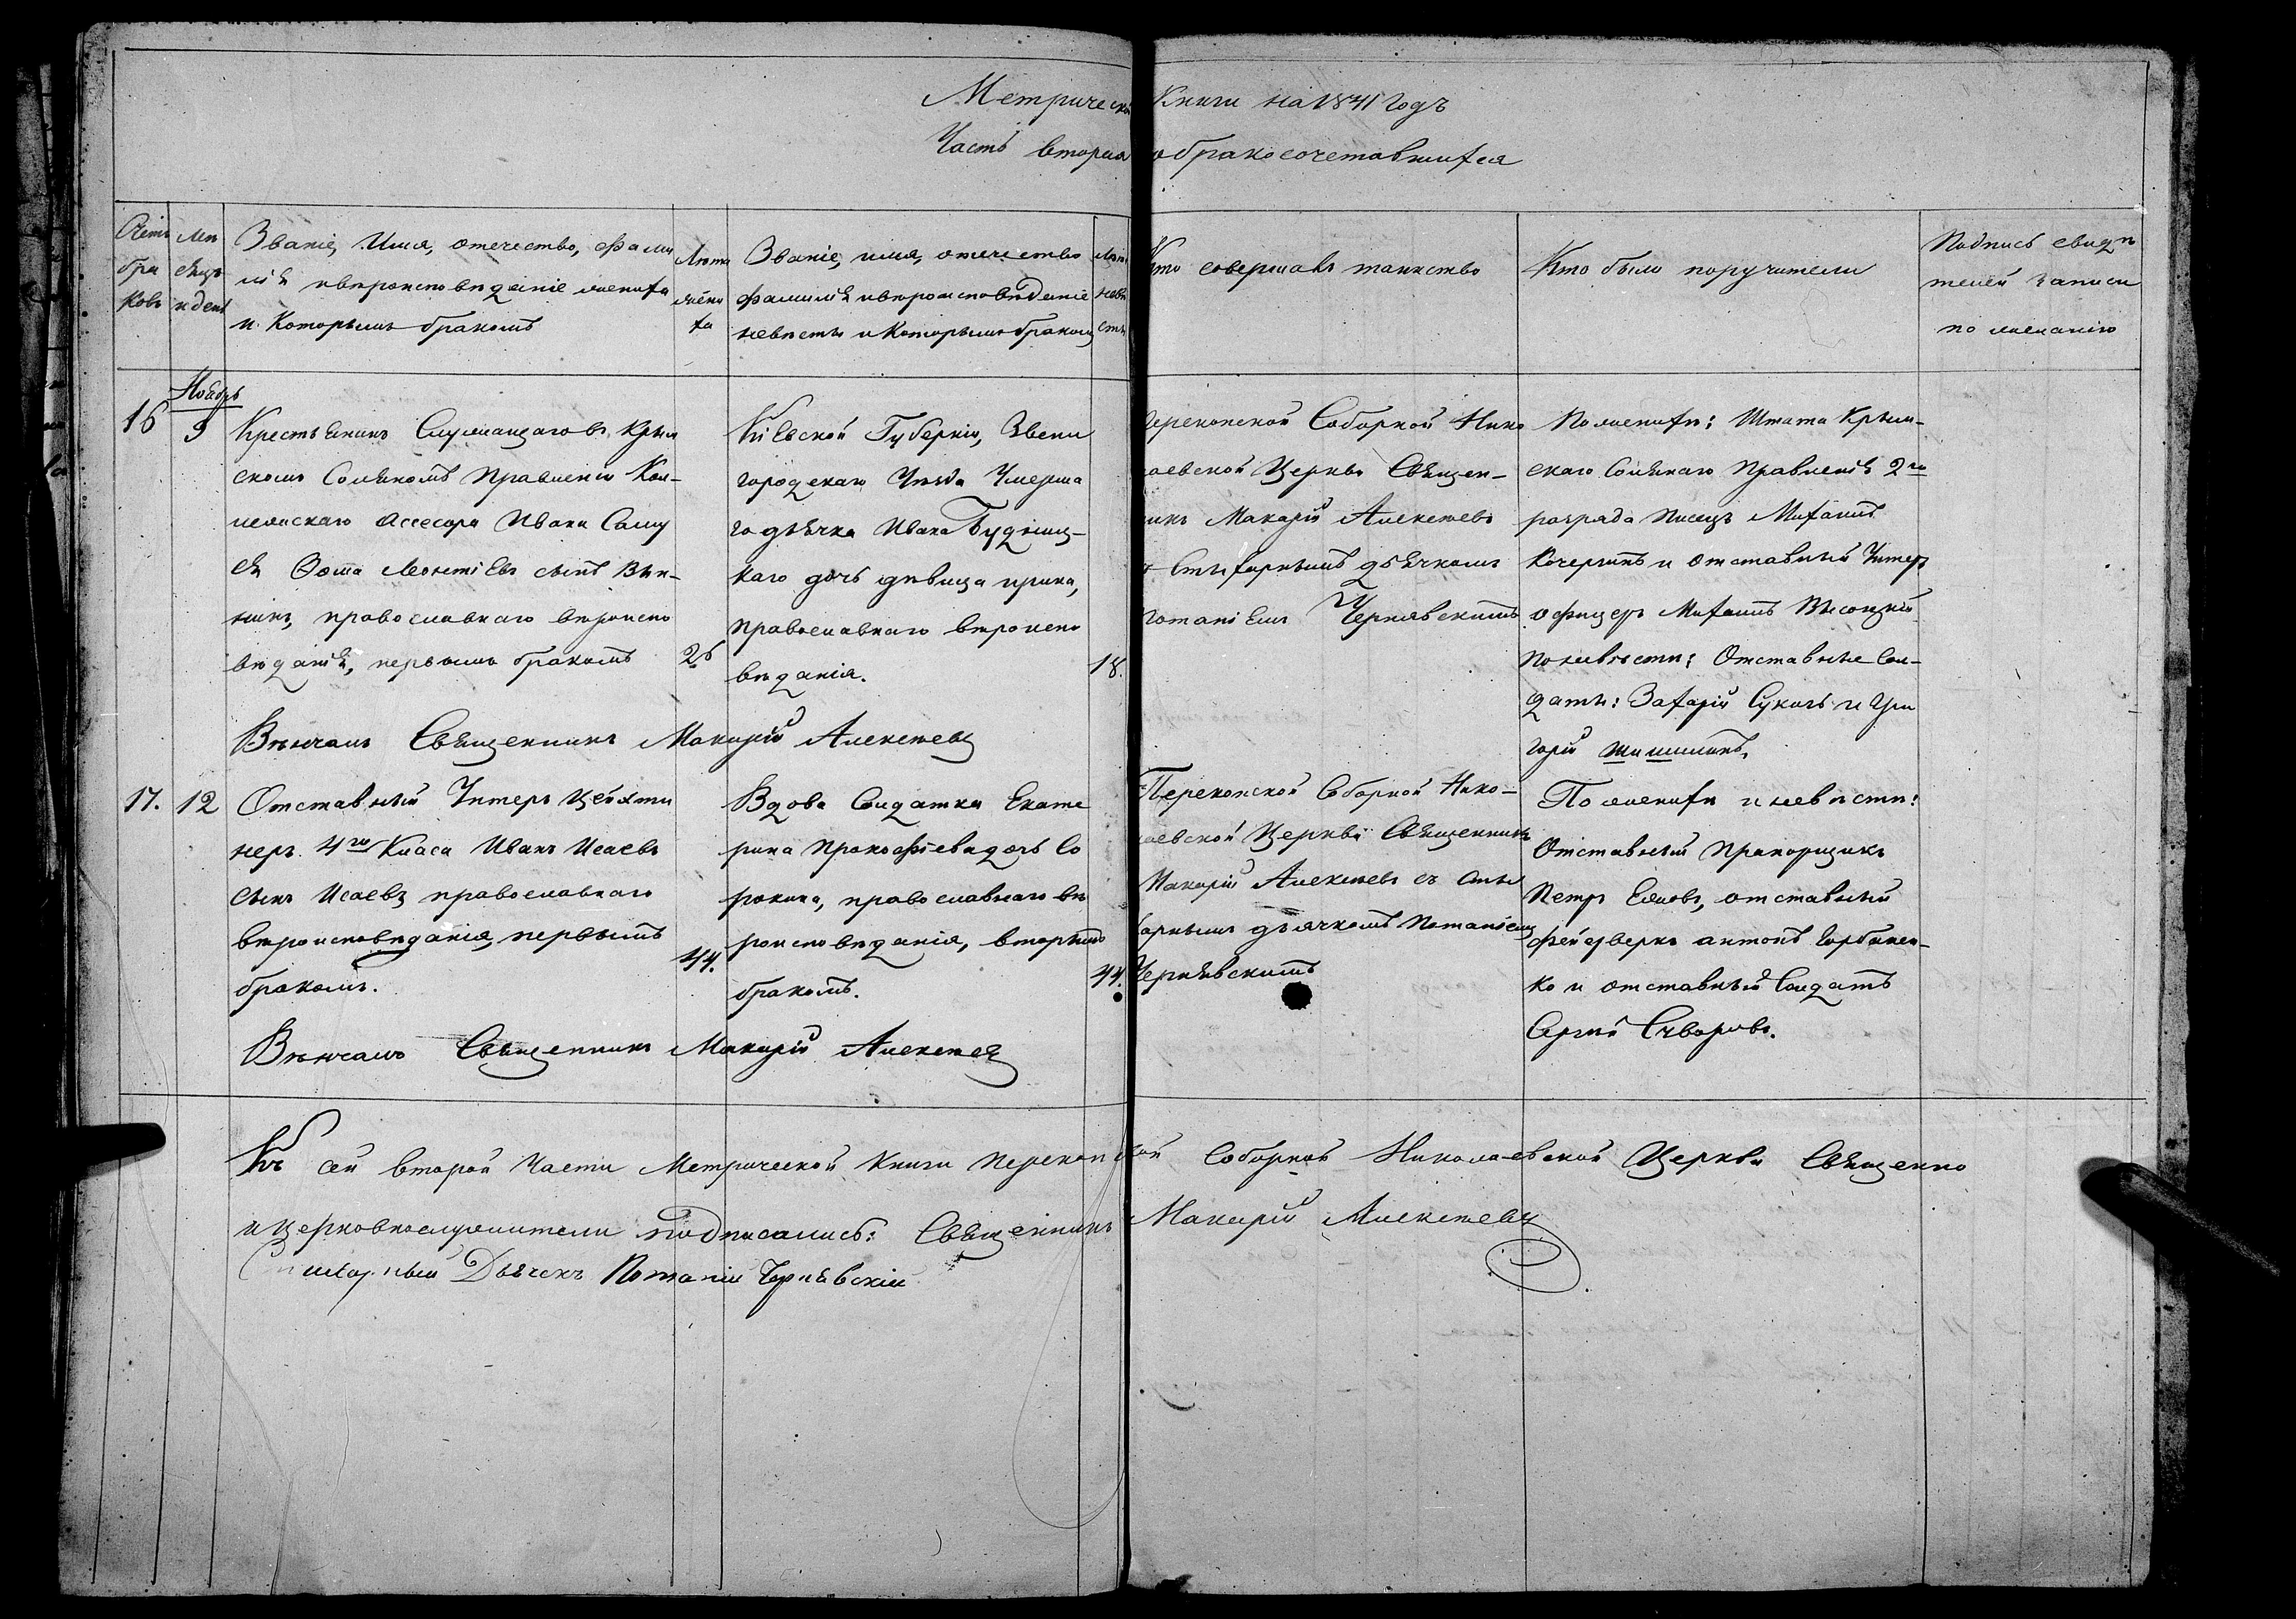 Метрической Книги на 1841 Годъ
Часть вторая о бракосочетавшихся
Счетъ
бра
ковъ
мѣ
сяцъ
и день
Званіе, Имя, отечество, фами
лія и вѣроисповѣданіе жениха
и Которымъ бракомъ
Лѣта
жени
ха
Званіе, имя, отечество
фамилія и вѣроисповѣданіе
невѣсты и Которымъ бракомъ
Лѣта
невѣ
сты
Кто совершалъ таинство
Кто были поручители
Подпись свидѣ
телей записи
по желанію
16
Ноябрь
9
Крестьянинъ Служащаго въ Крым
скомъ Соляномъ Правленіи Кол-
лежскаго Ассесора Ивана Саму
ся Леонтіевъ сынъ
православнаго вѣроиспо
вѣданія, первымъ бракомъ
26
Кіевской Губерніи, Звени
городскаго Уѣзда Умерша
го дьячка Ивана Будниц-
каго дочь дѣвица Ирина,
православнаго вѣроиспо
вѣданія.
18.
Перекопской Соборной Нико
лаевской Церкви Священ-
никъ Макарій Алексѣевъ
съ Стихарнымъ дьячкомъ
Потапіемъ Чернявскимъ
По женихѣ: Штата Крым-
скаго Солянаго Правленія 2го
разряда Писецъ Михаилъ
Кочергинъ и отставный Унтеръ
офицеръ Михаилъ Высоцкій
по невѣсти: Отставные Сол-
даты: Захарій Суколъ и Гри
горій
Вѣнчалъ Священникъ Макарій Алексѣевъ
17.
12
Отставный Унтеръ Цейхти
неръ 4го Класа Иванъ Исаевъ
сынъ Исаевъ православнаго
вѣроисповѣданія, первымъ
бракомъ.
44.
Вдова Солдатка Екате
рина Прокофіева дочь Со
рокина, православнаго вѣ
роисповѣданія, вторымъ
бракомъ.
44.
Перекопской Соборной Нико-
лаевской Церкви Священникъ
Макарій Алексѣевъ съ Сти
харнымъ дьячкомъ Потапіемъ
Чернявскимъ
По женихѣ и невѣсти:
Отставный Прапорщикъ
Петръ отставный
фейерверкъ антонъ Горбанен-
ко и отставный Солдатъ
Сергѣй Суворовъ.
Вѣнчалъ Священникъ Макарій Алексѣевъ
Къ сей второй Части Метрической Книги Перекопской Соборной Николаевской Церкви Священно
и церковнослужители подписались: Священникъ Макарій Алексѣевъ
Стихарный Дьячекъ Потапій Чернявскій